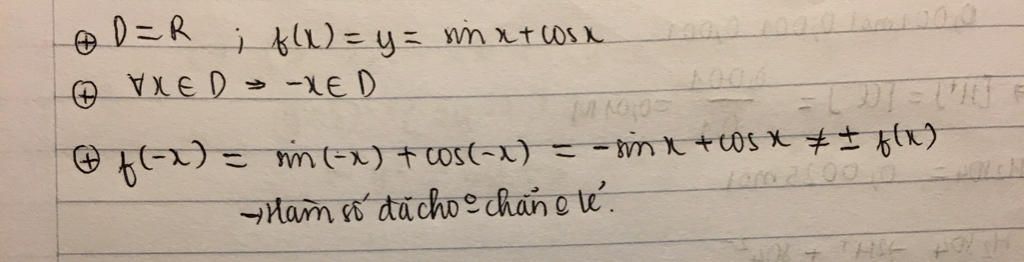 ⊕ D=R ; f(x) = y = sin x + cos x
⊕ ∀x ∈ D ⇒ -x ∈ D
⊕ f(-x) = sin(-x) + cos(-x) = -sin x + cos x ≠ ± f(x)
→ Hàm số đã cho o chẵn o lẻ.